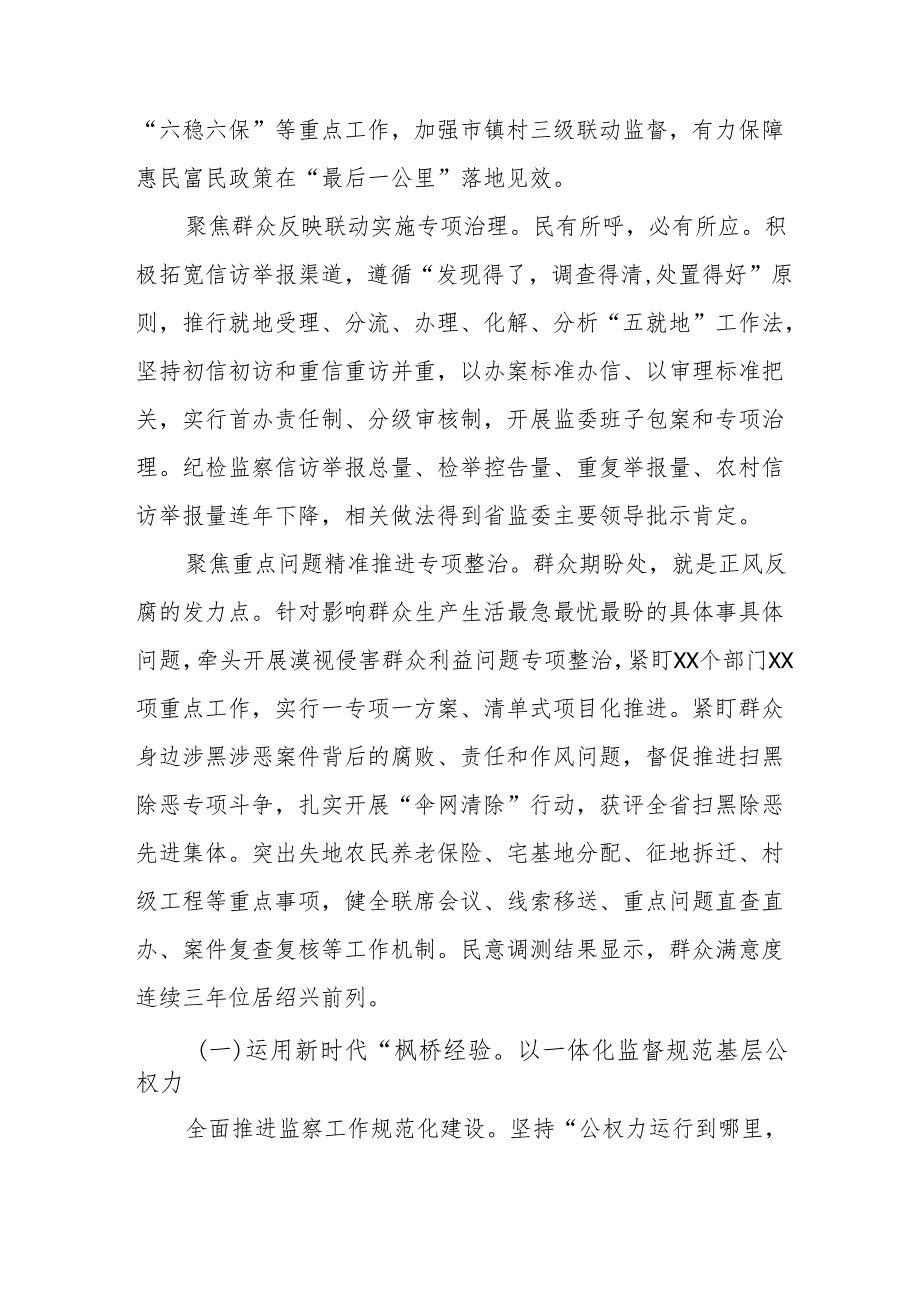 “六稳六保”等重点工作，加强市镇村三级联动监督，有力保障
惠民富民政策在“最后一公里”落地见效。
聚焦群众反映联动实施专项治理。民有所呼，必有所应。积
极拓宽信访举报渠道，遵循“发现得了，调查得清,处置得好”原
则，推行就地受理、分流、办理、化解、分析“五就地”工作法，
坚持初信初访和重信重访并重，以办案标准办信、以审理标准把
关，实行首办责任制、分级审核制，开展监委班子包案和专项治
理。纪检监察信访举报总量、检举控告量、重复举报量、农村信
访举报量连年下降，相关做法得到省监委主要领导批示肯定。
聚焦重点问题精准推进专项整治。群众期盼处，就是正风反
腐的发力点。针对影响群众生产生活最急最忧最盼的具体事具体
问题,牵头开展漠视侵害群众利益问题专项整治,紧盯XX个部门XX
项重点工作，实行一专项一方案、清单式项目化推进。紧盯群众
身边涉黑涉恶案件背后的腐败、责任和作风问题，督促推进扫黑
除恶专项斗争，扎实开展“伞网清除”行动，获评全省扫黑除恶
先进集体。突出失地农民养老保险、宅基地分配、征地拆迁、村
级工程等重点事项，健全联席会议、线索移送、重点问题直查直
办、案件复查复核等工作机制。民意调测结果显示，群众满意度
连续三年位居绍兴前列。
(一)运用新时代“枫桥经验。以一体化监督规范基层公
权力
全面推进监察工作规范化建设。坚持“公权力运行到哪里，